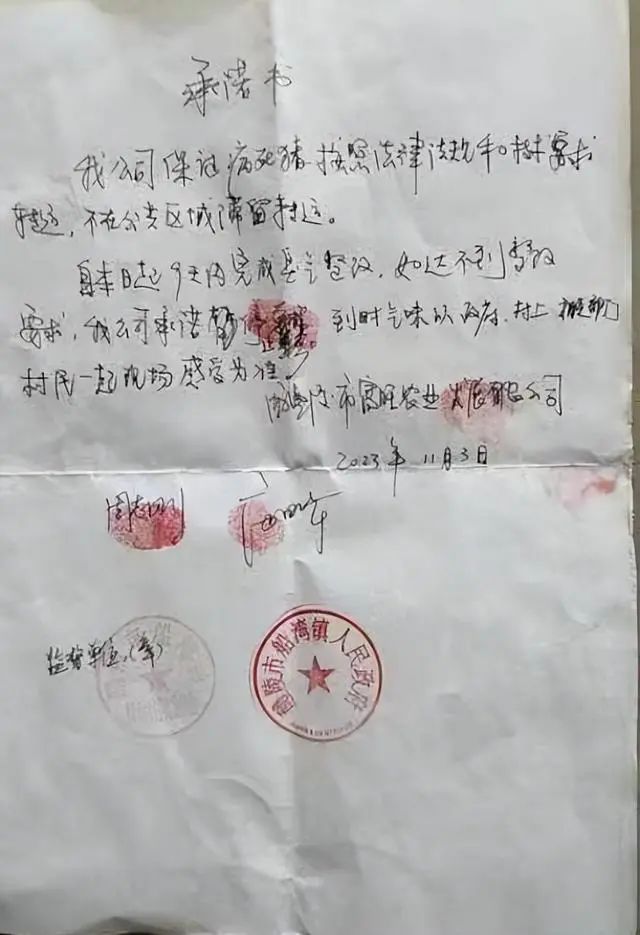 承诺书
我公司保证病死猪按照法律法规和村要求
转运，不在公共区域滞留转运。
自本日起9天内完成臭气整改，如达不到整改
要求，我公司承诺暂停 。到时气味以政府、村上
村民一起现场感受为准
市富旺农业发展有限公司
2023年11月3日
周志
监督单位：(章)
醴陵市船湾镇人民政府